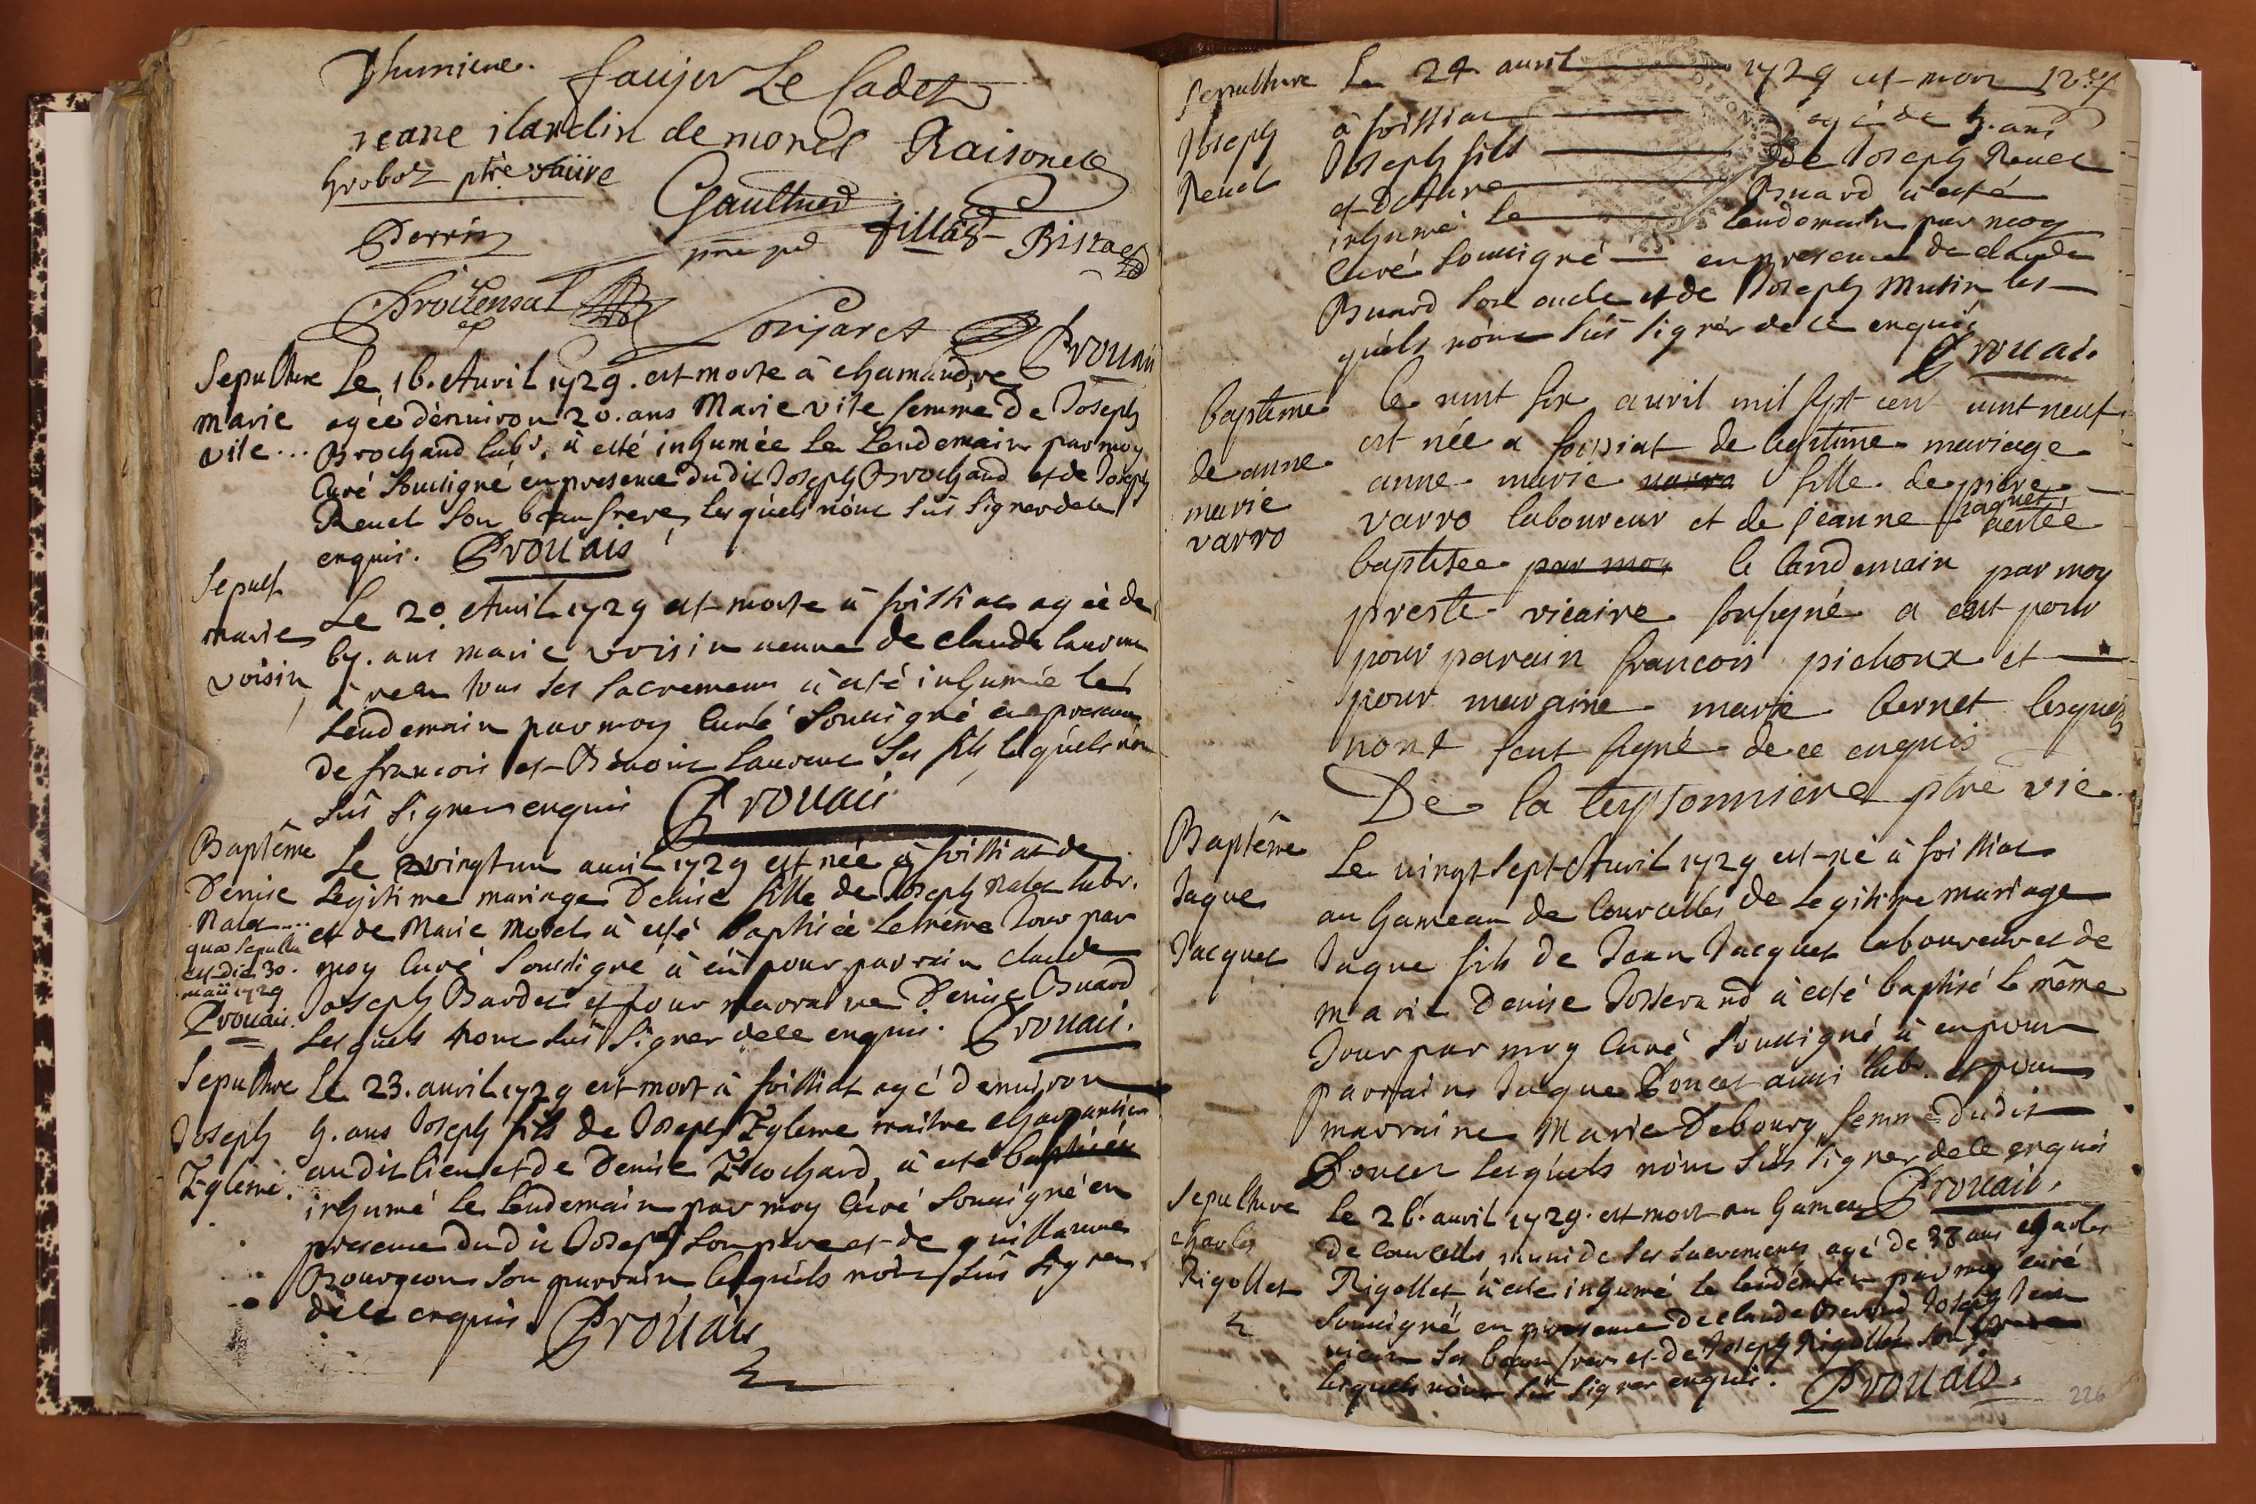 Thumiere.
faujer Le Cadet
Jeane ilardin de morel Raisonet
Groboz ptre vaiire
Gaulthier
Perrin
fillad Bisrae
Provensal
Lorijaret Prouais
Sepulture Le 16. Avril 1729. est morte à chamandre
marie agée dénuiron 20. ans Marie vite femme De Joseph
vite... Brochand labr. à esté inhumée Le Lendemain par moy
Curé Soussigné en presence dudit Joseph Brochand et de Joseph
Reuel Son beau frere, lesquels nônt sus signer de ce
enquis. Prouais
Sepult.
marie
voisin
Le 20. Avril 1729 est morte à foissiat agée de
67. ans marie voisin veuve de claude laurent
à receu tous ses sacremens à esté inhumée le
Lendemain par moy Curé Soussigné en presence
de francois et Bênoit Laurent ses fils lesquels nônt
sus signer enquis Prouais
Baptême Le vingtun auril 1729 est née à foissiat de
Denise Legitime mariage Denise fille de Joseph Nalet labr.
Nalet... et de Marie Morel à esté baptisée Le même Jour par
quæ sepulta
est die 30.
maii 1729
Prouais.
moy Curé Soussigné à eü pour parrain claude
Joseph Bardet et pour marraine Denise Buard
Lesquels nont sus signer de ce enquis. Prouais.
Sepulture Le 23. auril 1729 est mort à foissiat agé denuiron
Joseph 4. ans Joseph fils de Joseph Egleme maitre charpentier
Egleme. au dit lieu et de Denise Brochard, à esté baptisée
inhumé Le Lendemain par moy Curé Soussigné en
presence du dit Joseph Son pere et de guillaume
Bourgeon Son parrain lesquels nônt sus signer
de ce enquis Prouais
Sepulture Le 24. auril 1729 est mort
Joseph à foissiat agé de 4. ans
Reuel Joseph fils de Joseph Reuel
et de Anne Buard à esté
inhumé le lendemain par moy
Curé Soussigné en presence de claude
Buard Son oncle et de Joseph Mutin les
quels nônt sus signer de ce enquis
Prouais.
baptême le uint six auril mil sept cent uint neuf
de anne est née a foissiat de legitime mariage
marie anne marie varro fille de piere
varro varro laboureur et de jeanne paquet aestée
baptisee par moy le landemain par moy
prestre vicaire sousigné a eut pour
pour parain francois pichoux et
pour maraine marie bernet lesquels
nont seut signé de ce enquis
De la teyssonniere ptre vic.
Baptême Le vingt sept Avril 1729 est né à foissiat
Jaque au hameau de Courcelles de Legitime Mariage
Jacquet Jaque fils de Jean Jacquet laboureur et de
marie Denise Josserand à esté baptisé Le même
Jour par moy Curé Soussigné à eu pour
parrain Jaque Poncet aussi labr. et pour
marraine Marie Debourg femme dudit
Poncet Lesquels nônt sus signer de ce enquis
Prouais.
Sepulture Le 26. auril 1729. est mort au hameau
charles de Courcelles, muni de ses sacremens agé de 38 ans charles
Rigollet Rigollet à esté inhumé le lendemain par moy curé
Soussigné en presence de claude Joseph Jean
ses beau freres et de Joseph Rigollet son
lesquels nônt sus signer enquis. Prouais.
226